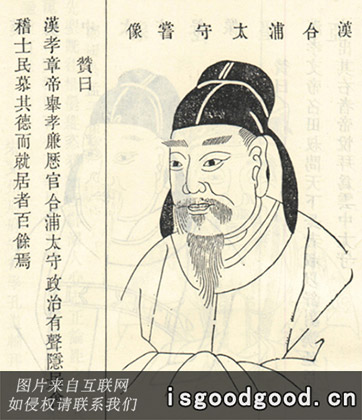 漢合浦太守嘗像
贊曰
漢孝章帝舉孝廉歷官合浦太守政治有聲隱
稽士民慕其德而就居者百餘焉
图片来自互联网
如侵权请联系我们
isgoodgood.cn